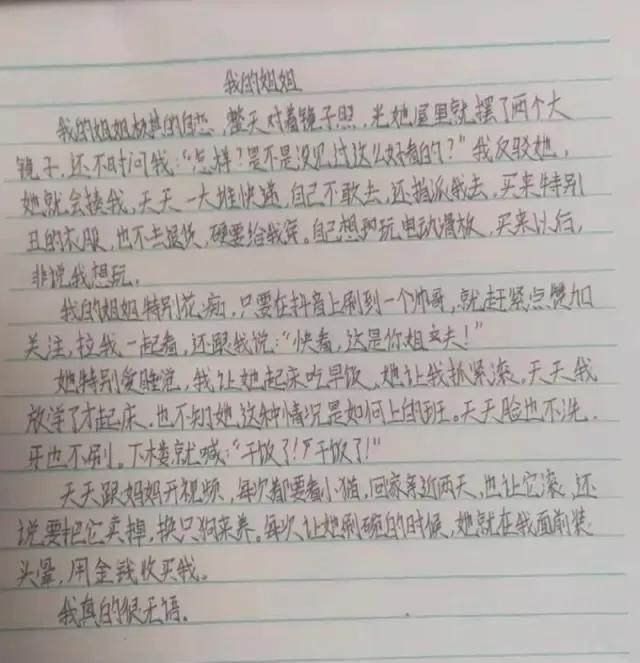 我的姐姐
我的姐姐极其的自恋，整天对着镜子照，光她屋里就摆了两个大
镜子，还不时问我：“怎样？是不是没见过这么好看的？”我反驳她，
她就会揍我，天天一大堆快递，自己不敢去，还指派我去，买来特别
丑的衣服，也不去退货，硬要给我穿。自己想玩电动滑板，买来以后，
非说我想玩。
我的姐姐特别花痴，只要在抖音上刷到一个帅哥，就赶紧点赞加
关注，拉我一起看，还跟我说：“快看，这是你姐夫！”
她特别爱睡觉，我让她起床吃早饭，她让我抓紧滚。天天我
放学了才起床，也不知她这种情况是如何上的班。天天脸也不洗，
牙也不刷。下楼就喊：“干饭了！干饭了！”
天天跟妈妈开视频，每次都要看小猫，回家亲近两天，也让它滚，还
说要把它卖掉，换只狗来养。每次让她刷碗的时候，她就在我面前装
头晕，用金钱收买我。
我真的很无语。